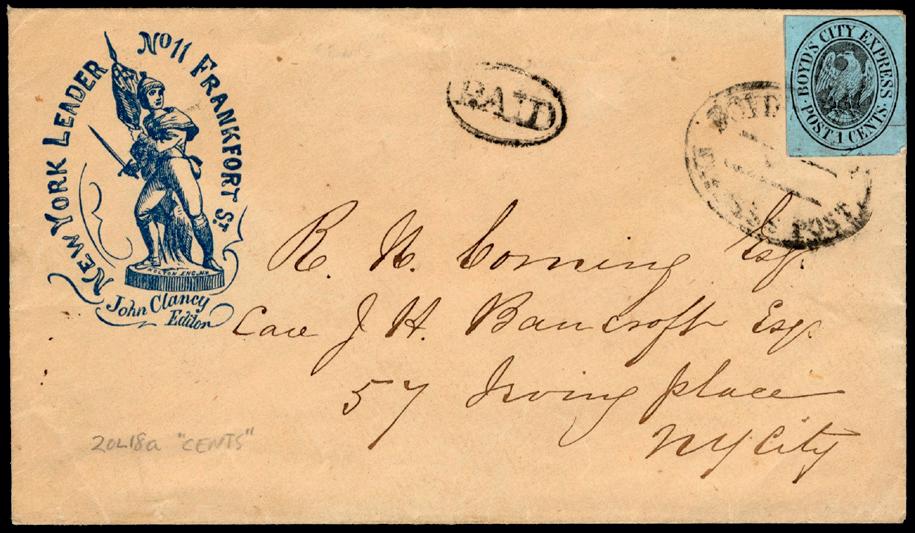 NEW YORK LEADER No 11 FRANKFORT ST
HOLTON ENG. NY
John Clancy
Editor
PAID
BOYD'S CITY EXPRESS
POST 1 CENTS
BOYD
POST
R. N. Corning Esq.
Care J. H. Bancroft Esq.
57 Irving place
NY City
20L18a "CENTS"